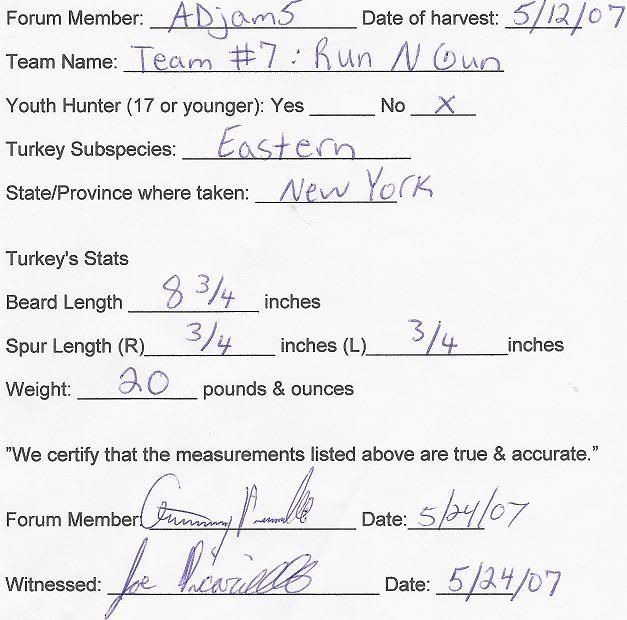 Forum Member: ADjam5 Date of harvest: 5/12/07
Team Name: Team #7: Run N Gun
Youth Hunter (17 or younger): Yes ______ No X
Turkey Subspecies: Eastern
State/Province where taken: New York
Turkey's Stats
Beard Length 8 3/4 inches
Spur Length (R) 3/4 inches (L) 3/4 inches
Weight: 20 pounds & ounces
"We certify that the measurements listed above are true & accurate."
Forum Member: Date: 5/24/07
Witnessed: Joe Date: 5/24/07